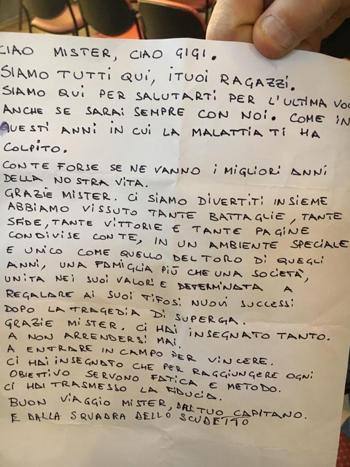 CIAO MISTER, CIAO GIGI.
SIAMO TUTTI QUI, I TUOI RAGAZZI.
SIAMO QUI PER SALUTARTI PER L'ULTIMA VO
ANCHE SE SARAI SEMPRE CON NOI. COME IN
QUESTI ANNI IN CUI LA MALATTIA TI HA
COLPITO.
CON TE FORSE SE NE VANNO I MIGLIORI ANNI
DELLA NOSTRA VITA.
GRAZIE MISTER. CI SIAMO DIVERTITI INSIEME
ABBIAMO VISSUTO TANTE BATTAGLIE, TANTE
SFIDE, TANTE VITTORIE E TANTE PAGINE
CONDIVISE CON TE, IN UN AMBIENTE SPECIALE
E UNICO COME QUELLO DEL TORO DI QUEGLI
ANNI, UNA FAMIGLIA PIÙ CHE UNA SOCIETÀ,
UNITA NEI SUOI VALORI E DETERMINATA A
REGALARE AI SUOI TIFOSI NUOVI SUCCESSI
DOPO LA TRAGEDIA DI SUPERGA.
GRAZIE MISTER. CI HAI INSEGNATO TANTO.
A NON ARRENDERSI MAI.
A ENTRARE IN CAMPO PER VINCERE.
CI HAI INSEGNATO CHE PER RAGGIUNGERE OGNI
OBIETTIVO SERVONO FATICA E METODO.
CI HAI TRASMESSO LA FIDUCIA.
BUON VIAGGIO MISTER, DAL TUO CAPITANO.
E DALLA SQUADRA DELLO SCUDETTO